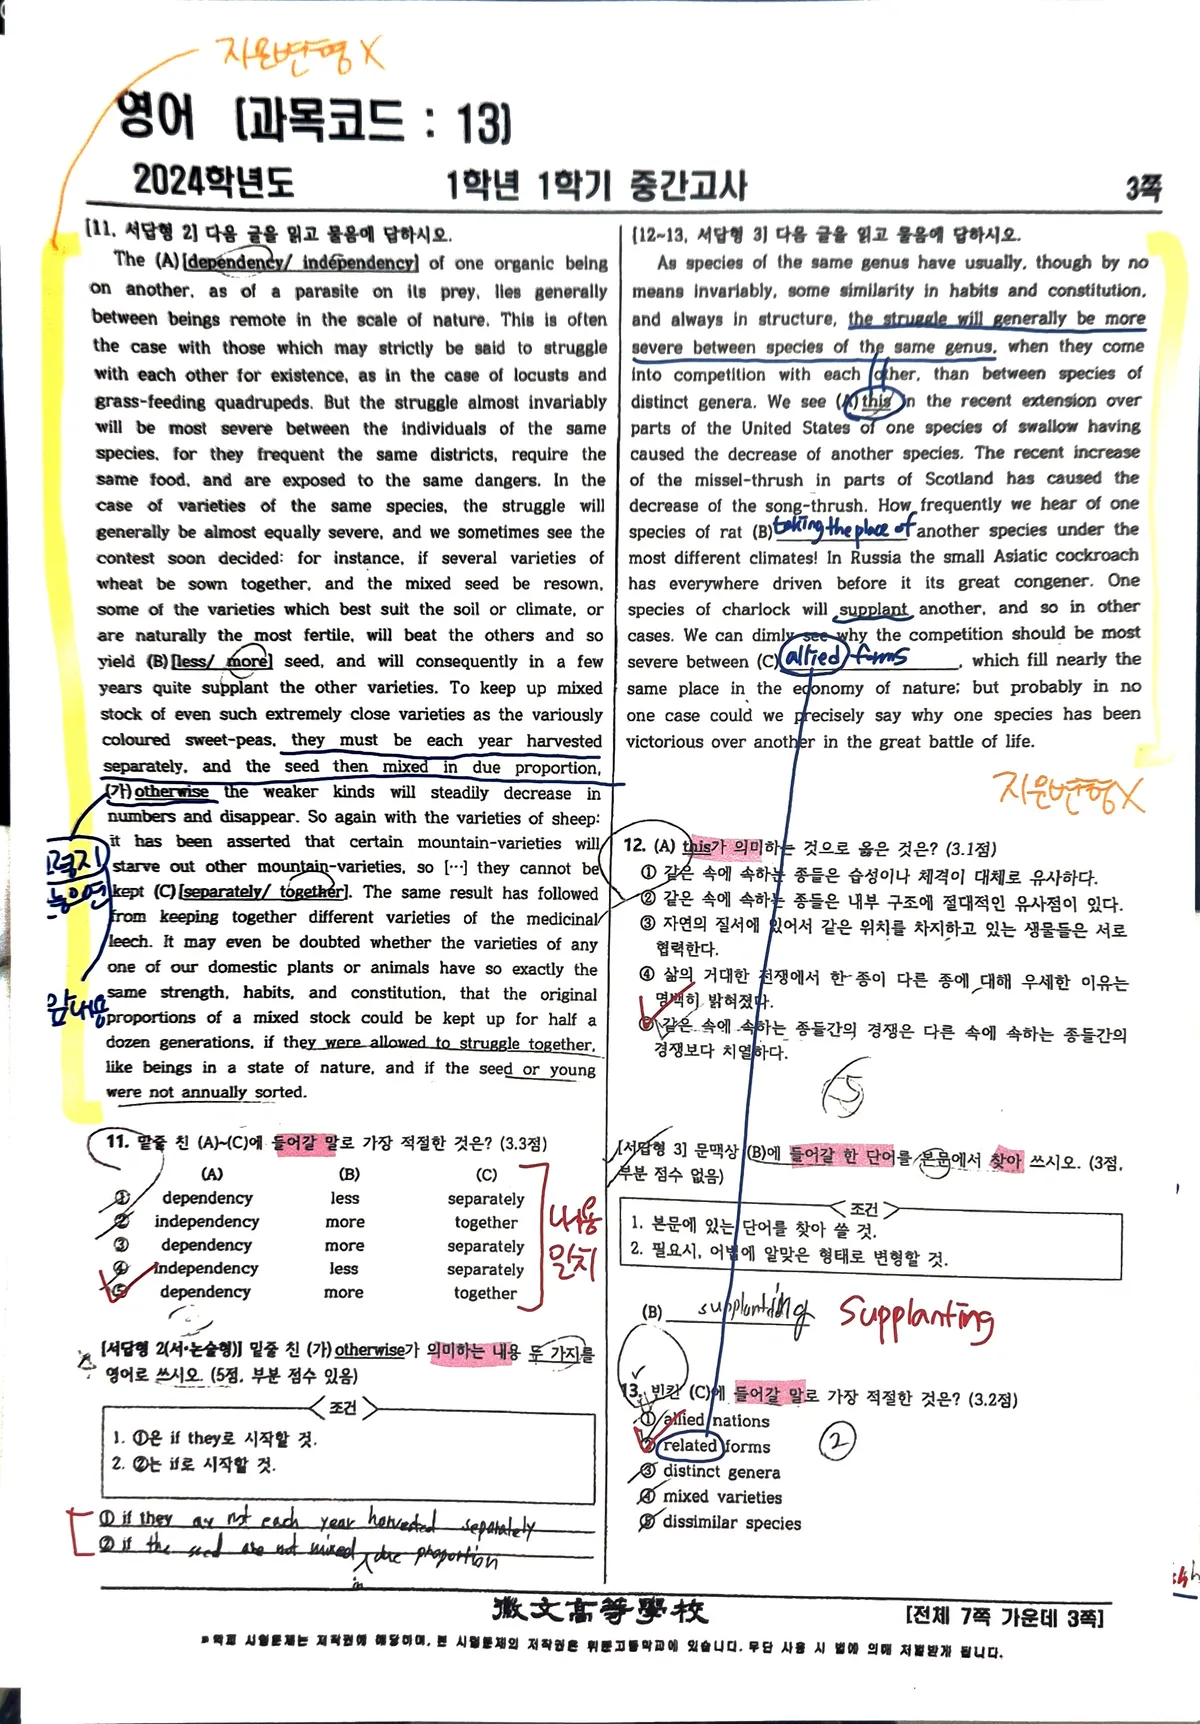 자문변형 X
영어 [과목코드 : 13]
2024학년도 1학년 1학기 중간고사 3쪽
[11, 서답형 2] 다음 글을 읽고 물음에 답하시오.
The (A)[dependency/ independency] of one organic being
on another, as of a parasite on its prey, lies generally
between beings remote in the scale of nature. This is often
the case with those which may strictly be said to struggle
with each other for existence, as in the case of locusts and
grass-feeding quadrupeds. But the struggle almost invariably
will be most severe between the individuals of the same
species, for they frequent the same districts, require the
same food, and are exposed to the same dangers. In the
case of varieties of the same species, the struggle will
generally be almost equally severe, and we sometimes see the
contest soon decided: for instance, if several varieties of
wheat be sown together, and the mixed seed be resown,
some of the varieties which best suit the soil or climate, or
are naturally the most fertile, will beat the others and so
yield (B)[less/ more] seed, and will consequently in a few
years quite supplant the other varieties. To keep up mixed
stock of even such extremely close varieties as the variously
coloured sweet-peas, they must be each year harvested
separately, and the seed then mixed in due proportion,
(가)otherwise the weaker kinds will steadily decrease in
numbers and disappear. So again with the varieties of sheep:
it has been asserted that certain mountain-varieties will
starve out other mountain-varieties, so […] they cannot be
kept (C)[separately/ together]. The same result has followed
from keeping together different varieties of the medicinal
leech. It may even be doubted whether the varieties of any
one of our domestic plants or animals have so exactly the
same strength, habits, and constitution, that the original
proportions of a mixed stock could be kept up for half a
dozen generations, if they were allowed to struggle together,
like beings in a state of nature, and if the seed or young
were not annually sorted.
앞내용
11. 밑줄 친 (A)~(C)에 들어갈 말로 가장 적절한 것은? (3.3점)
(A) (B) (C)
① dependency less separately
② independency more together
③ dependency more separately
④ independency less separately
⑤ dependency more together
내용
일치
[서답형 2(서·논술형)] 밑줄 친 (가)otherwise가 의미하는 내용 두 가지를
영어로 쓰시오. (5점, 부분 점수 있음)
<조건>
1. ①은 if they로 시작할 것.
2. ②는 if로 시작할 것.
① if they are not each year harvested separately
② if the seed are not mixed in due proportion
[12~13, 서답형 3] 다음 글을 읽고 물음에 답하시오.
As species of the same genus have usually, though by no
means invariably, some similarity in habits and constitution,
and always in structure, the struggle will generally be more
severe between species of the same genus, when they come
into competition with each other, than between species of
distinct genera. We see (A)this in the recent extension over
parts of the United States of one species of swallow having
caused the decrease of another species. The recent increase
of the missel-thrush in parts of Scotland has caused the
decrease of the song-thrush. How frequently we hear of one
species of rat (B) taking the place of another species under the
most different climates! In Russia the small Asiatic cockroach
has everywhere driven before it its great congener. One
species of charlock will supplant another, and so in other
cases. We can dimly see why the competition should be most
severe between (C) allied forms, which fill nearly the
same place in the economy of nature; but probably in no
one case could we precisely say why one species has been
victorious over another in the great battle of life.
자문변형 X
12. (A) this가 의미하는 것으로 옳은 것은? (3.1점)
① 같은 속에 속하는 종들은 습성이나 체격이 대체로 유사하다.
② 같은 속에 속하는 종들은 내부 구조에 절대적인 유사점이 있다.
③ 자연의 질서에 있어서 같은 위치를 차지하고 있는 생물들은 서로
협력한다.
④ 삶의 거대한 전쟁에서 한 종이 다른 종에 대해 우세한 이유는
명백히 밝혀졌다.
⑤ 같은 속에 속하는 종들간의 경쟁은 다른 속에 속하는 종들간의
경쟁보다 치열하다.
5
[서답형 3] 문맥상 (B)에 들어갈 한 단어를 본문에서 찾아 쓰시오. (3점,
부분 점수 없음)
<조건>
1. 본문에 있는 단어를 찾아 쓸 것.
2. 필요시, 어법에 알맞은 형태로 변형할 것.
(B) supplanting supplanting
13. 빈칸 (C)에 들어갈 말로 가장 적절한 것은? (3.2점)
① allied nations
② related forms
③ distinct genera
④ mixed varieties
⑤ dissimilar species
②
徽文高等學校
[전체 7쪽 가운데 3쪽]
본 시험문제의 저작권은 휘문고등학교에 있습니다. 무단 사용 시 법에 의해 처벌받게 됩니다.